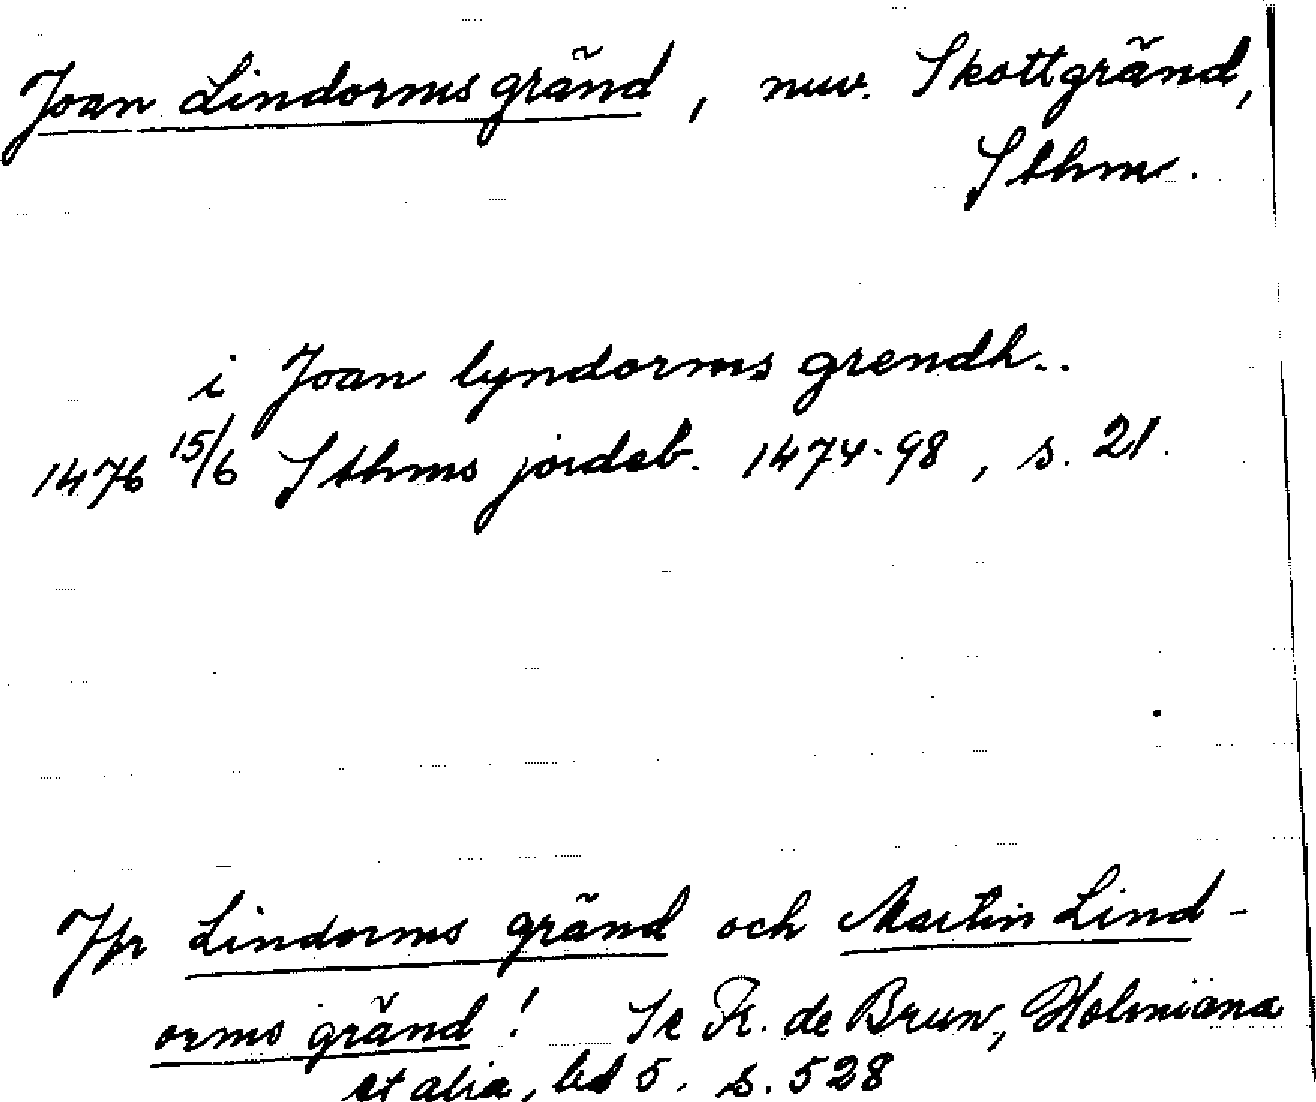 Joan Lindorms gränd, nuv. Skottgränd,
Sthm.
i Joan lyndorms grendh..
1476 15/6 Sthms jordeb. 1474-98, s. 21.
Jfr Lindorms gränd och Martin Lind-
orms gränd! Se Fr. de Brun, Holmiana
et alia, bd 5. s. 528